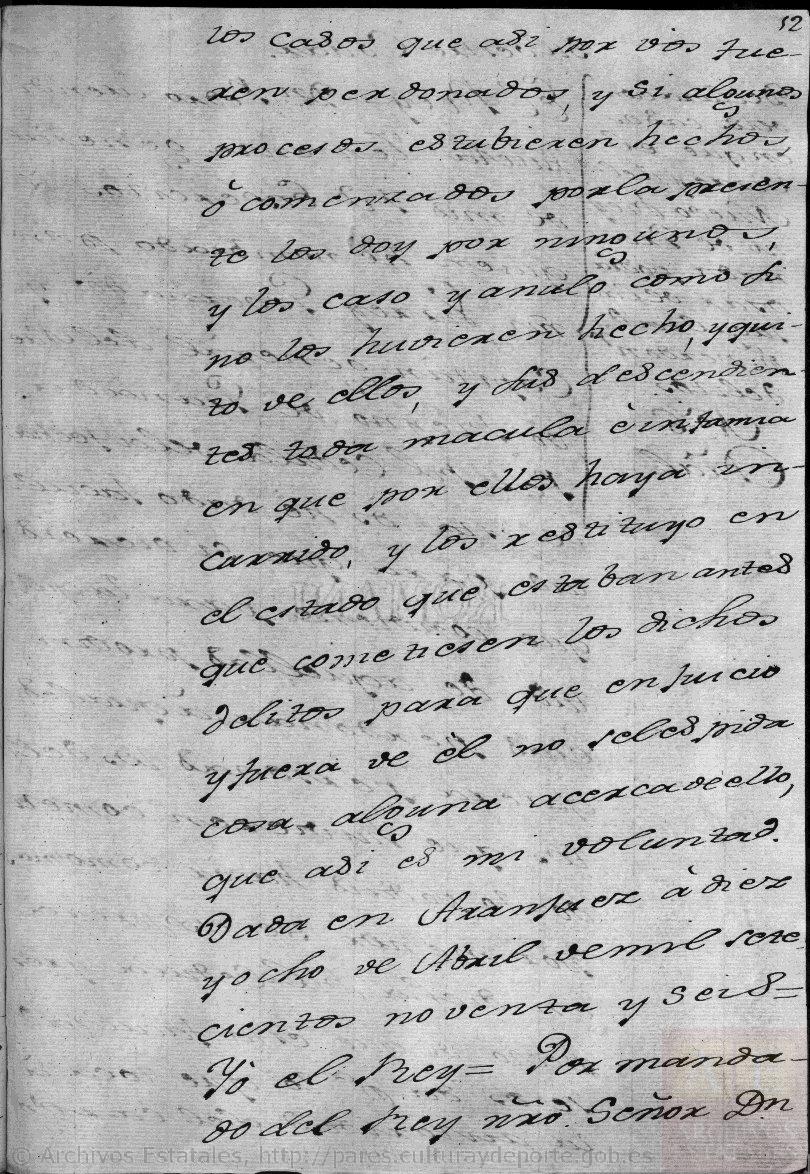 52
los casos que asi por vos fue-
ren perdonados, y si algunos
procesos estubieren hechos,
ô comenzados por la presen-
te los doy por ningunos,
y los caso y anulo como si
no los huvieren hecho, y qui-
to de ellos, y sus descendien-
tes toda macula è infamia
en que por ellos haya in-
currido, y los restituyo en
el estado que estaban antes
que cometiesen los dichos
delitos para que en juicio
y fuera de èl no seles pida
cosa alguna acerca de ello,
que asi es mi voluntad.
Dada en Aranjuez à diez
y ocho de Abril de mil sete-
cientos noventa y seis =
Yo el Rey = Por manda-
do del Rey nrõ. Señor Dn
© Archivos Estatales, http://pares.culturaydeporte.gob.es